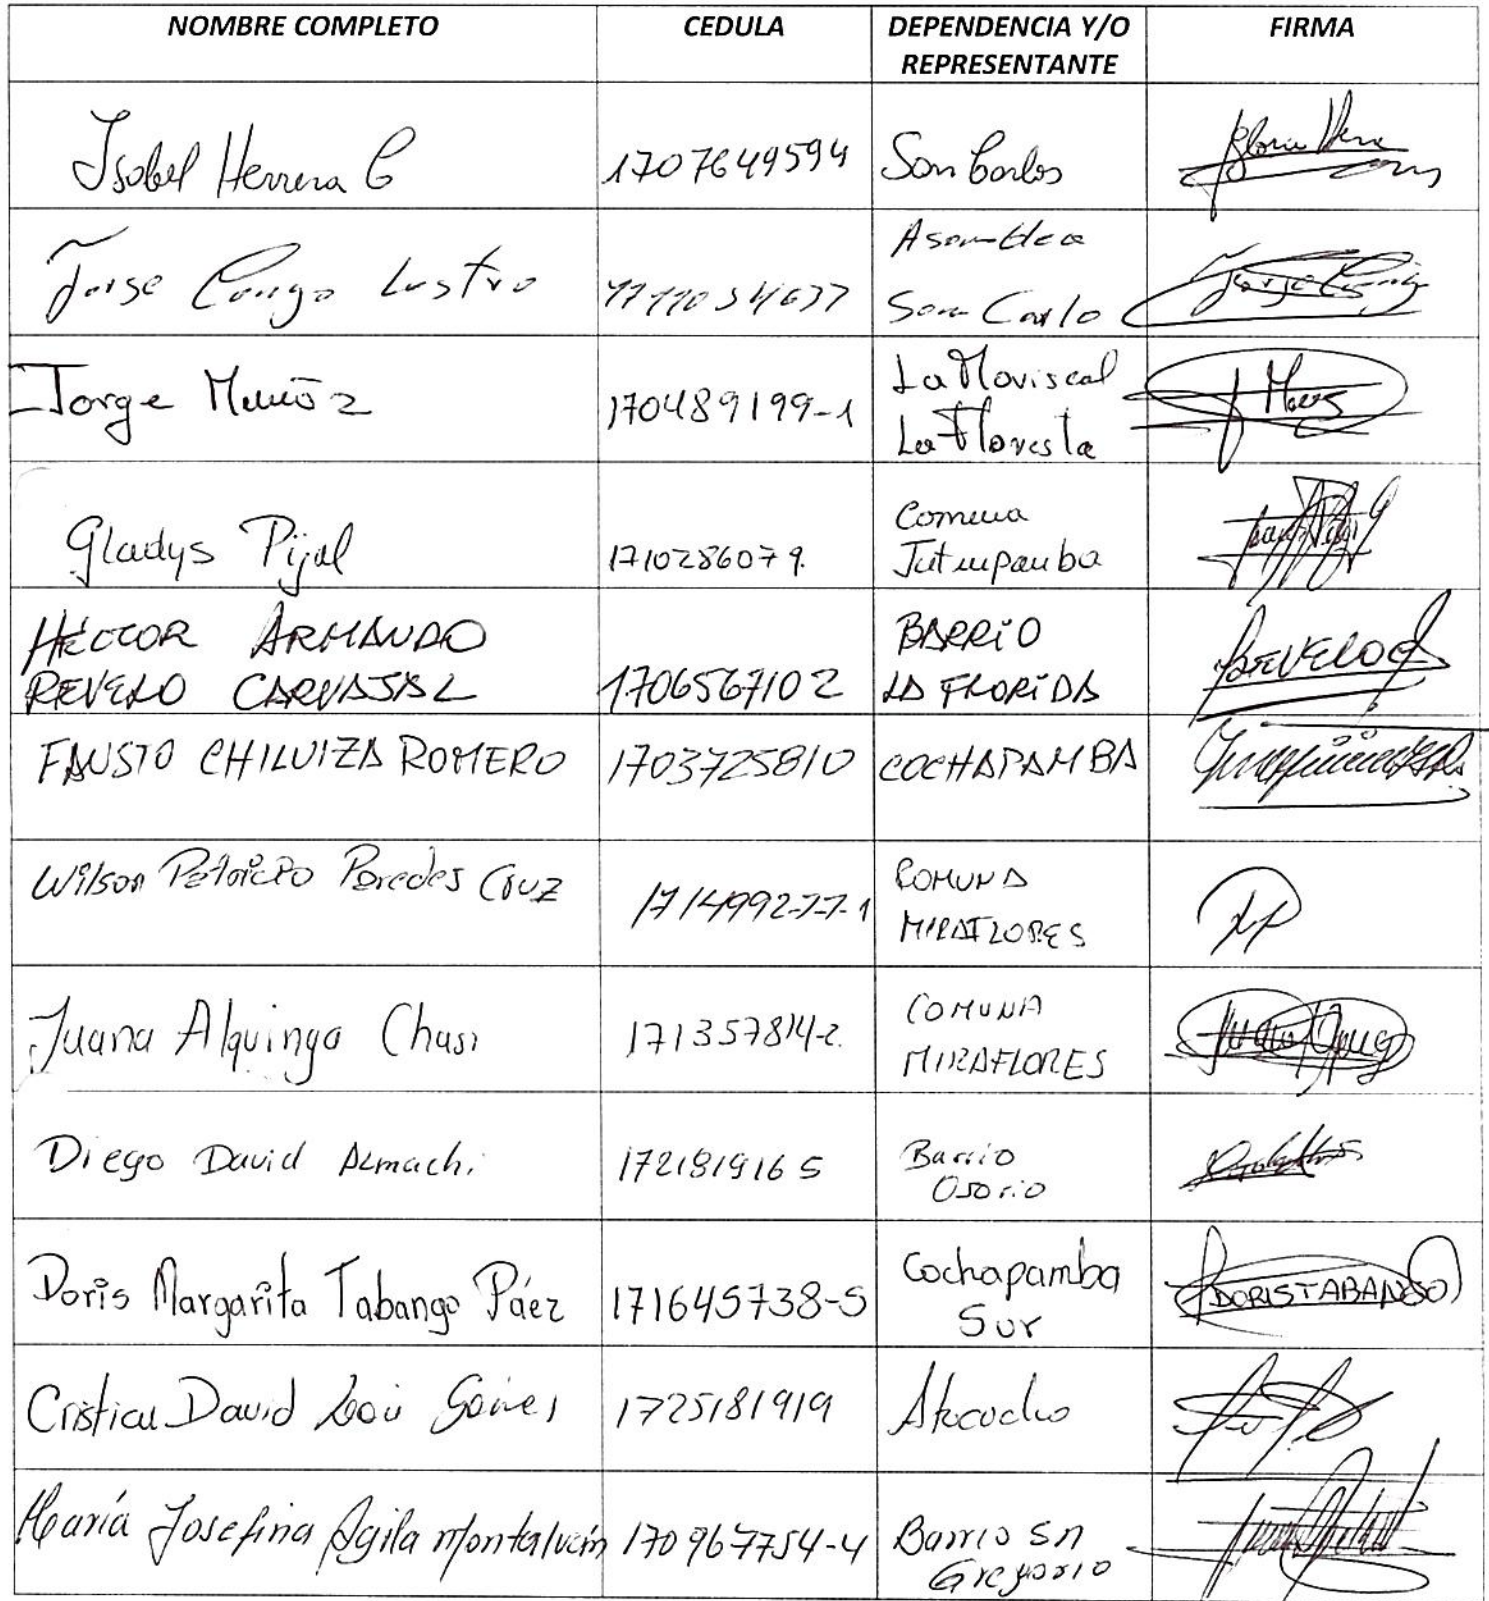 NOMBRE COMPLETO CEDULA DEPENDENCIA Y/O REPRESENTANTE FIRMA
Isabel Herrera C 1707649594 San Carlos
Jorge Congo Asamblea
San Carlo Jorge
Jorge Muñoz 170489199-1 La
La Floresta
Gladys Pijal 1710286079. Comuna
HÉCTOR ARMANDO BARRIO
REVELO CARVAJAL 1706567102 LA FLORIDA REVELO
FAUSTO CHILUIZA ROMERO 1703725810 COCHAPAMBA
Wilson Patricio Paredes Cruz 171499277-1 COMUNA
MIRAFLORES
Juana Alquinga Chasi 171357814-2 COMUNA
MIRAFLORES
Diego David Almachi 1721819165 Barrio
Osorio
Doris Margarita Tabango Páez 171645738-5 Cochapamba
Sur DORIS TABANGO
David 1725181919 Atucucho
María Josefina Agila 170967754-4 Barrio Sn
Gregorio